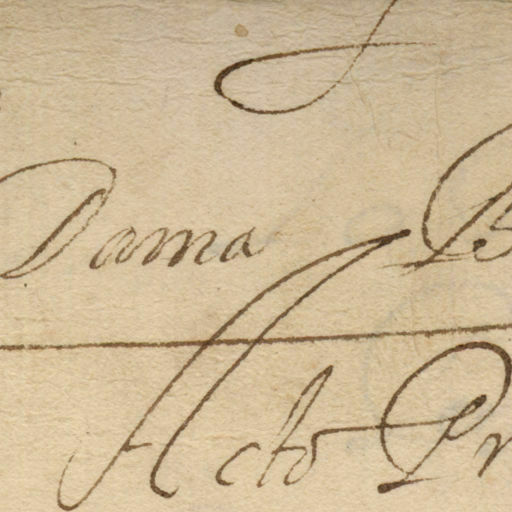 Dama
Acto Pr